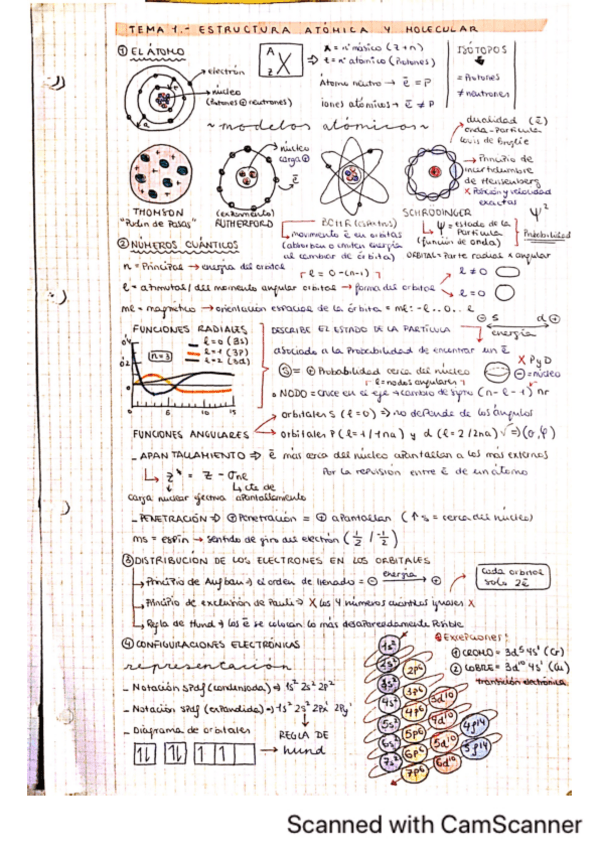 TEMA 1.- ESTRUCTURA ATÓMICA Y MOLECULAR
① EL ÁTOMO
electrón
núcleo
(protones ⊕ neutrones)
A
Z X
A = nº másico (Z+n)
Z = nº atómico (Protones)
Átomo neutro → ē = P
iones atómicos → ē ≠ P
ISÓTOPOS
= Protones
≠ neutrones
~modelos atómicos~
núcleo
carga ⊕
ē
dualidad (ē)
onda-Partícula
Louis de Broglie
Principio de
incertidumbre
de Heisenberg
X Posición y velocidad
exactas
THOMSON
"Pudin de Pasas"
RUTHERFORD
BOHR
movimiento ē en órbitas
(absorben o emiten energía
al cambiar de órbita)
SCHRÖDINGER
Ψ = estado de la
Partícula
(función de onda)
Ψ²
Probabilidad
ORBITAL = Parte radial x angular
② NÚMEROS CUÁNTICOS
n = Principal → energía del orbital
l = 0-(n-1)
l = azimutal / del momento angular orbital → forma del orbital
l ≠ 0
l = 0
ml = magnético → orientación espacial de la órbita = ml: -l..0..l
⊖ s d ⊕
energía
FUNCIONES RADIALES
l=0 (3s)
l=1 (3p)
l=2 (3d)
n=3
0'4
0'2
0
5 10 15
DESCRIBE EL ESTADO DE LA PARTÍCULA
asociado a la Probabilidad de encontrar un ē
S = ⊕ Probabilidad cerca del núcleo
X P y D
⊖ = núcleo
l = nodos angulares
NODO = cruce en el eje → cambio de signo (n-l-1) nr
orbitales s (l=0) => no depende de los ángulos
FUNCIONES ANGULARES
orbitales P (l=1/1na) y d (l=2/2na) √ => (θ, φ)
- APANTALLAMIENTO => ē más cerca del núcleo apantallan a los más externos
Por la repulsión entre ē de un átomo
z* = Z - σne
cte de
carga nuclear efectiva apantallamiento
- PENETRACIÓN => ⊕ Penetración = ⊕ apantallan (↑ s = cerca del núcleo)
ms = espín → sentido de giro del electrón (1/2 / -1/2)
③ DISTRIBUCIÓN DE LOS ELECTRONES EN LOS ORBITALES
Principio de Aufbau → el orden de llenado = ⊖ energía → ⊕
Cada orbital
solo 2ē
Principio de exclusión de Pauli => X los 4 números cuánticos iguales X
Regla de Hund → los ē se colocan lo más desapareadamente Posible
④ CONFIGURACIONES ELECTRÓNICAS
representación
- Notación spdf (condensada) => 1s² 2s² 2p²
- Notación spdf (expandida) => 1s² 2s² 2Px¹ 2Py¹
- Diagrama de orbitales
REGLA DE
hund
Excepciones:
① CROMO = 3d⁵ 4s¹ (Cr)
② COBRE = 3d¹⁰ 4s¹ (Cu)
transición electrónica
1s²
2s² 2p⁶
3s² 3p⁶ 3d¹⁰
4s² 4p⁶ 4d¹⁰ 4f14
5s² 5p⁶ 5d¹⁰ 5f14
6s² 6p⁶ 6d¹⁰
7s² 7p⁶
Scanned with CamScanner